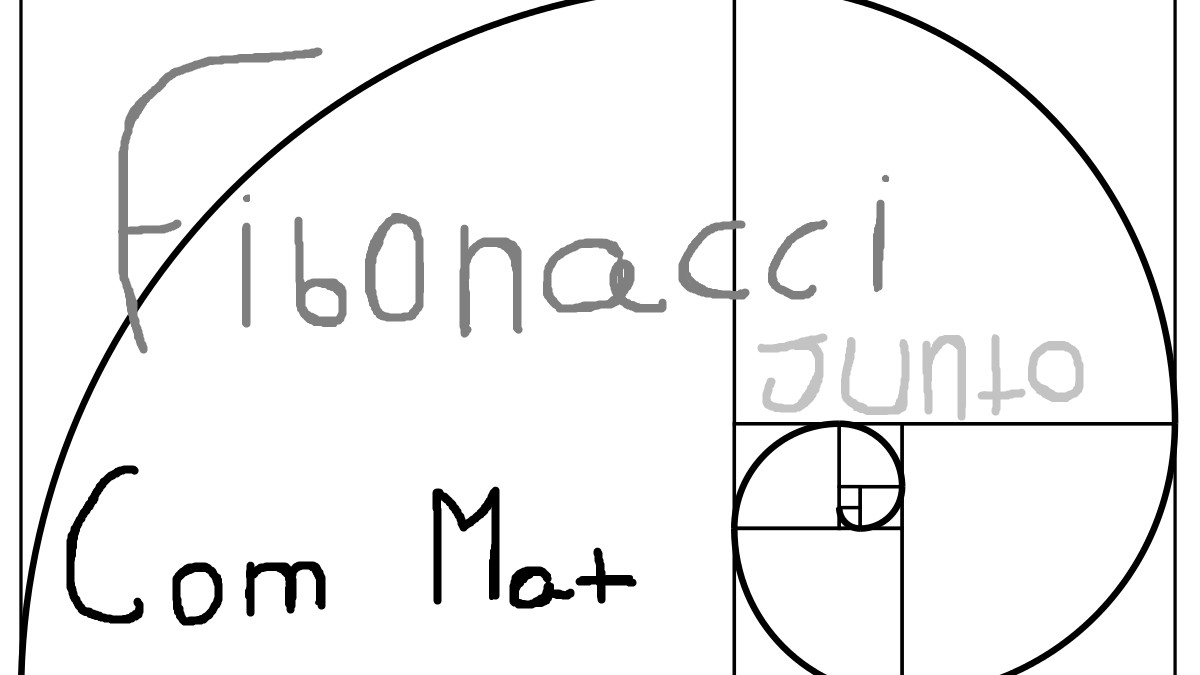 Fibonacci
Junto
Com Mat